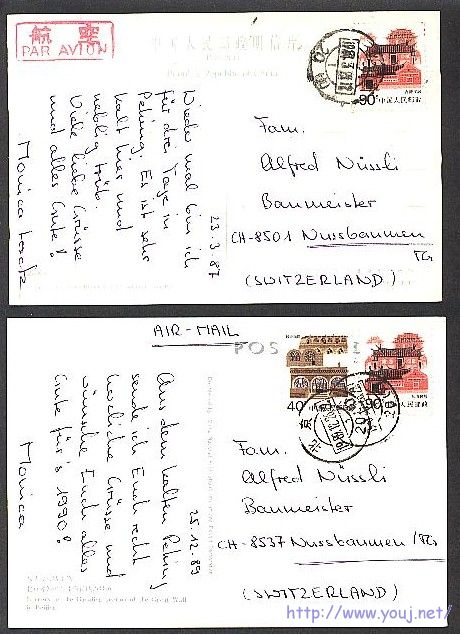 航 空
PAR AVION
中华人民邮政明信片
90分 中国人民邮政
Wieder mal bin ich
für drei Tage in
Peking. Es ist sehr
kalt hier und
neblig trüb.
Viele liebe Grüsse
und alles Gute!
Monica
23.3.87
Fam.
Alfred Nüssli
Baumeister
CH-8501 Nussbaumen
TG
(SWITZERLAND)
AIR-MAIL
POS
40
90
中国人民邮政
Aus dem kalten Peking
sende ich Euch recht
herzliche Grüsse und
wünsche Euch alles
Gute für's 1990!
Monica
25.12.89
Fam.
Alfred Nüssli
Baumeister
CH-8537 Nussbaumen/TG
(SWITZERLAND)
the Great Wall
in Beijing
http://www.youj.net/